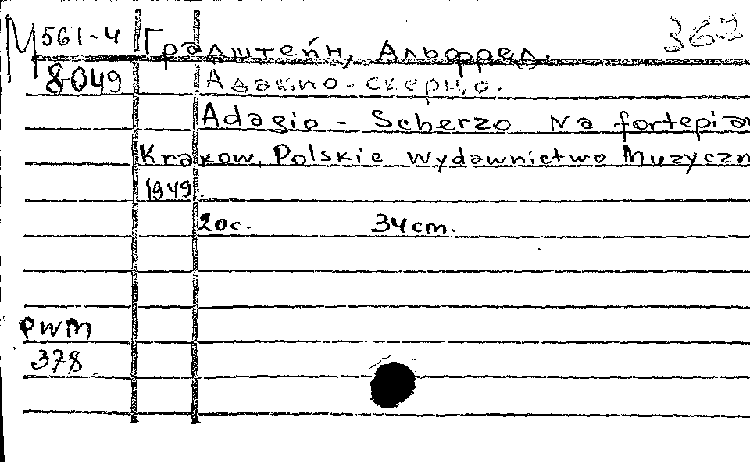 М 561-4 Градштейн, Альфред. 367
8049 Адажио-скерцо.
Adagio - Scherzo na fortepian
Krakow, Polskie Wydawnictwo Muzyczn
1949.
20с. 34cm.
PWM
378